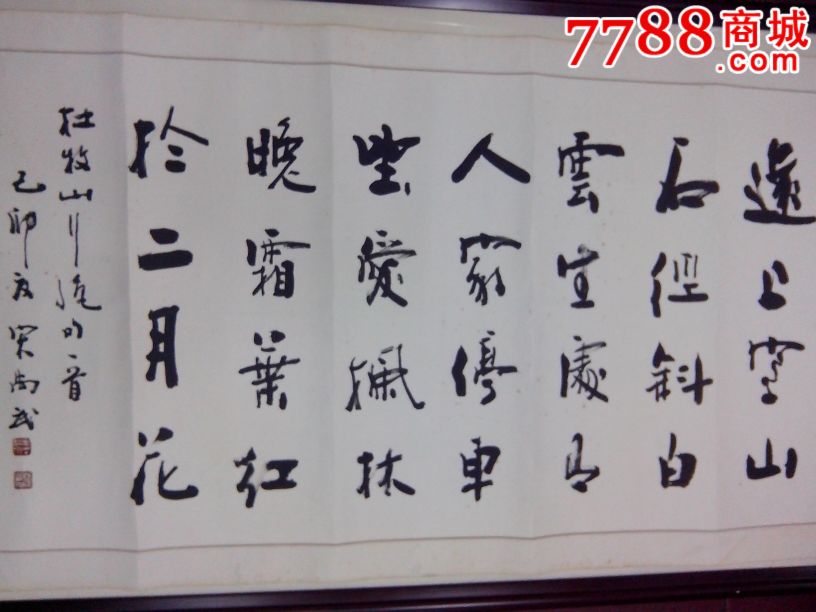 7788商城
遠上寒山
石徑斜白
雲生處有
人家停車
坐愛楓林
晚霜葉紅
於二月花
杜牧山行絶句一首
己卯夏 尚武